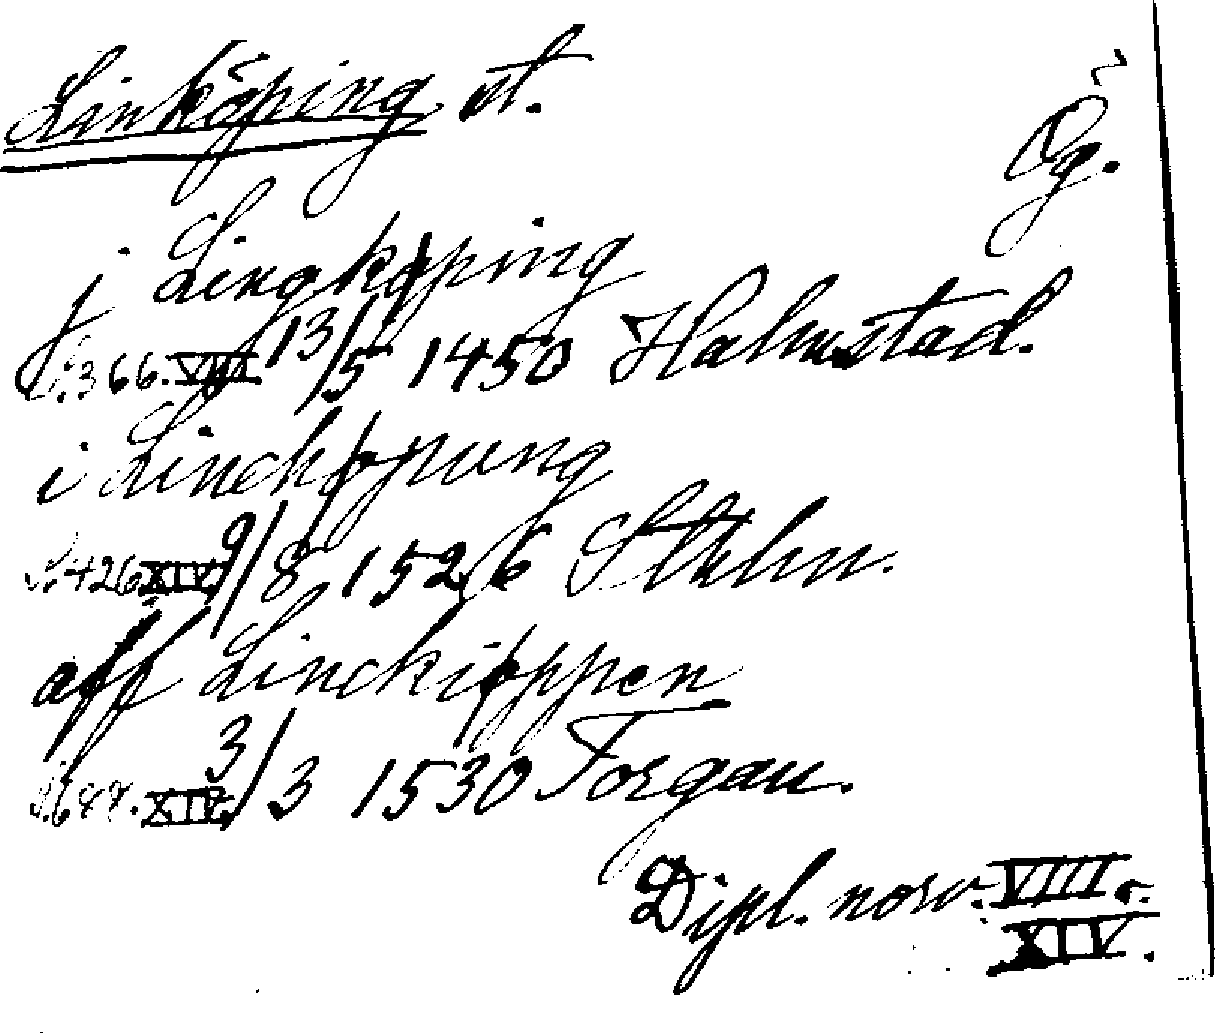 Linköping st.
Ög.
j Lingköping
S. 366. VIII. 13/5 1450 Halmstad.
i Linckøpung
S. 426 XIV. 9/8 1526 Sthlm.
aff Linckippen
S. 687. XIV. 3/3 1530 Torgau.
Dipl. norv. VIII o.
XIV.